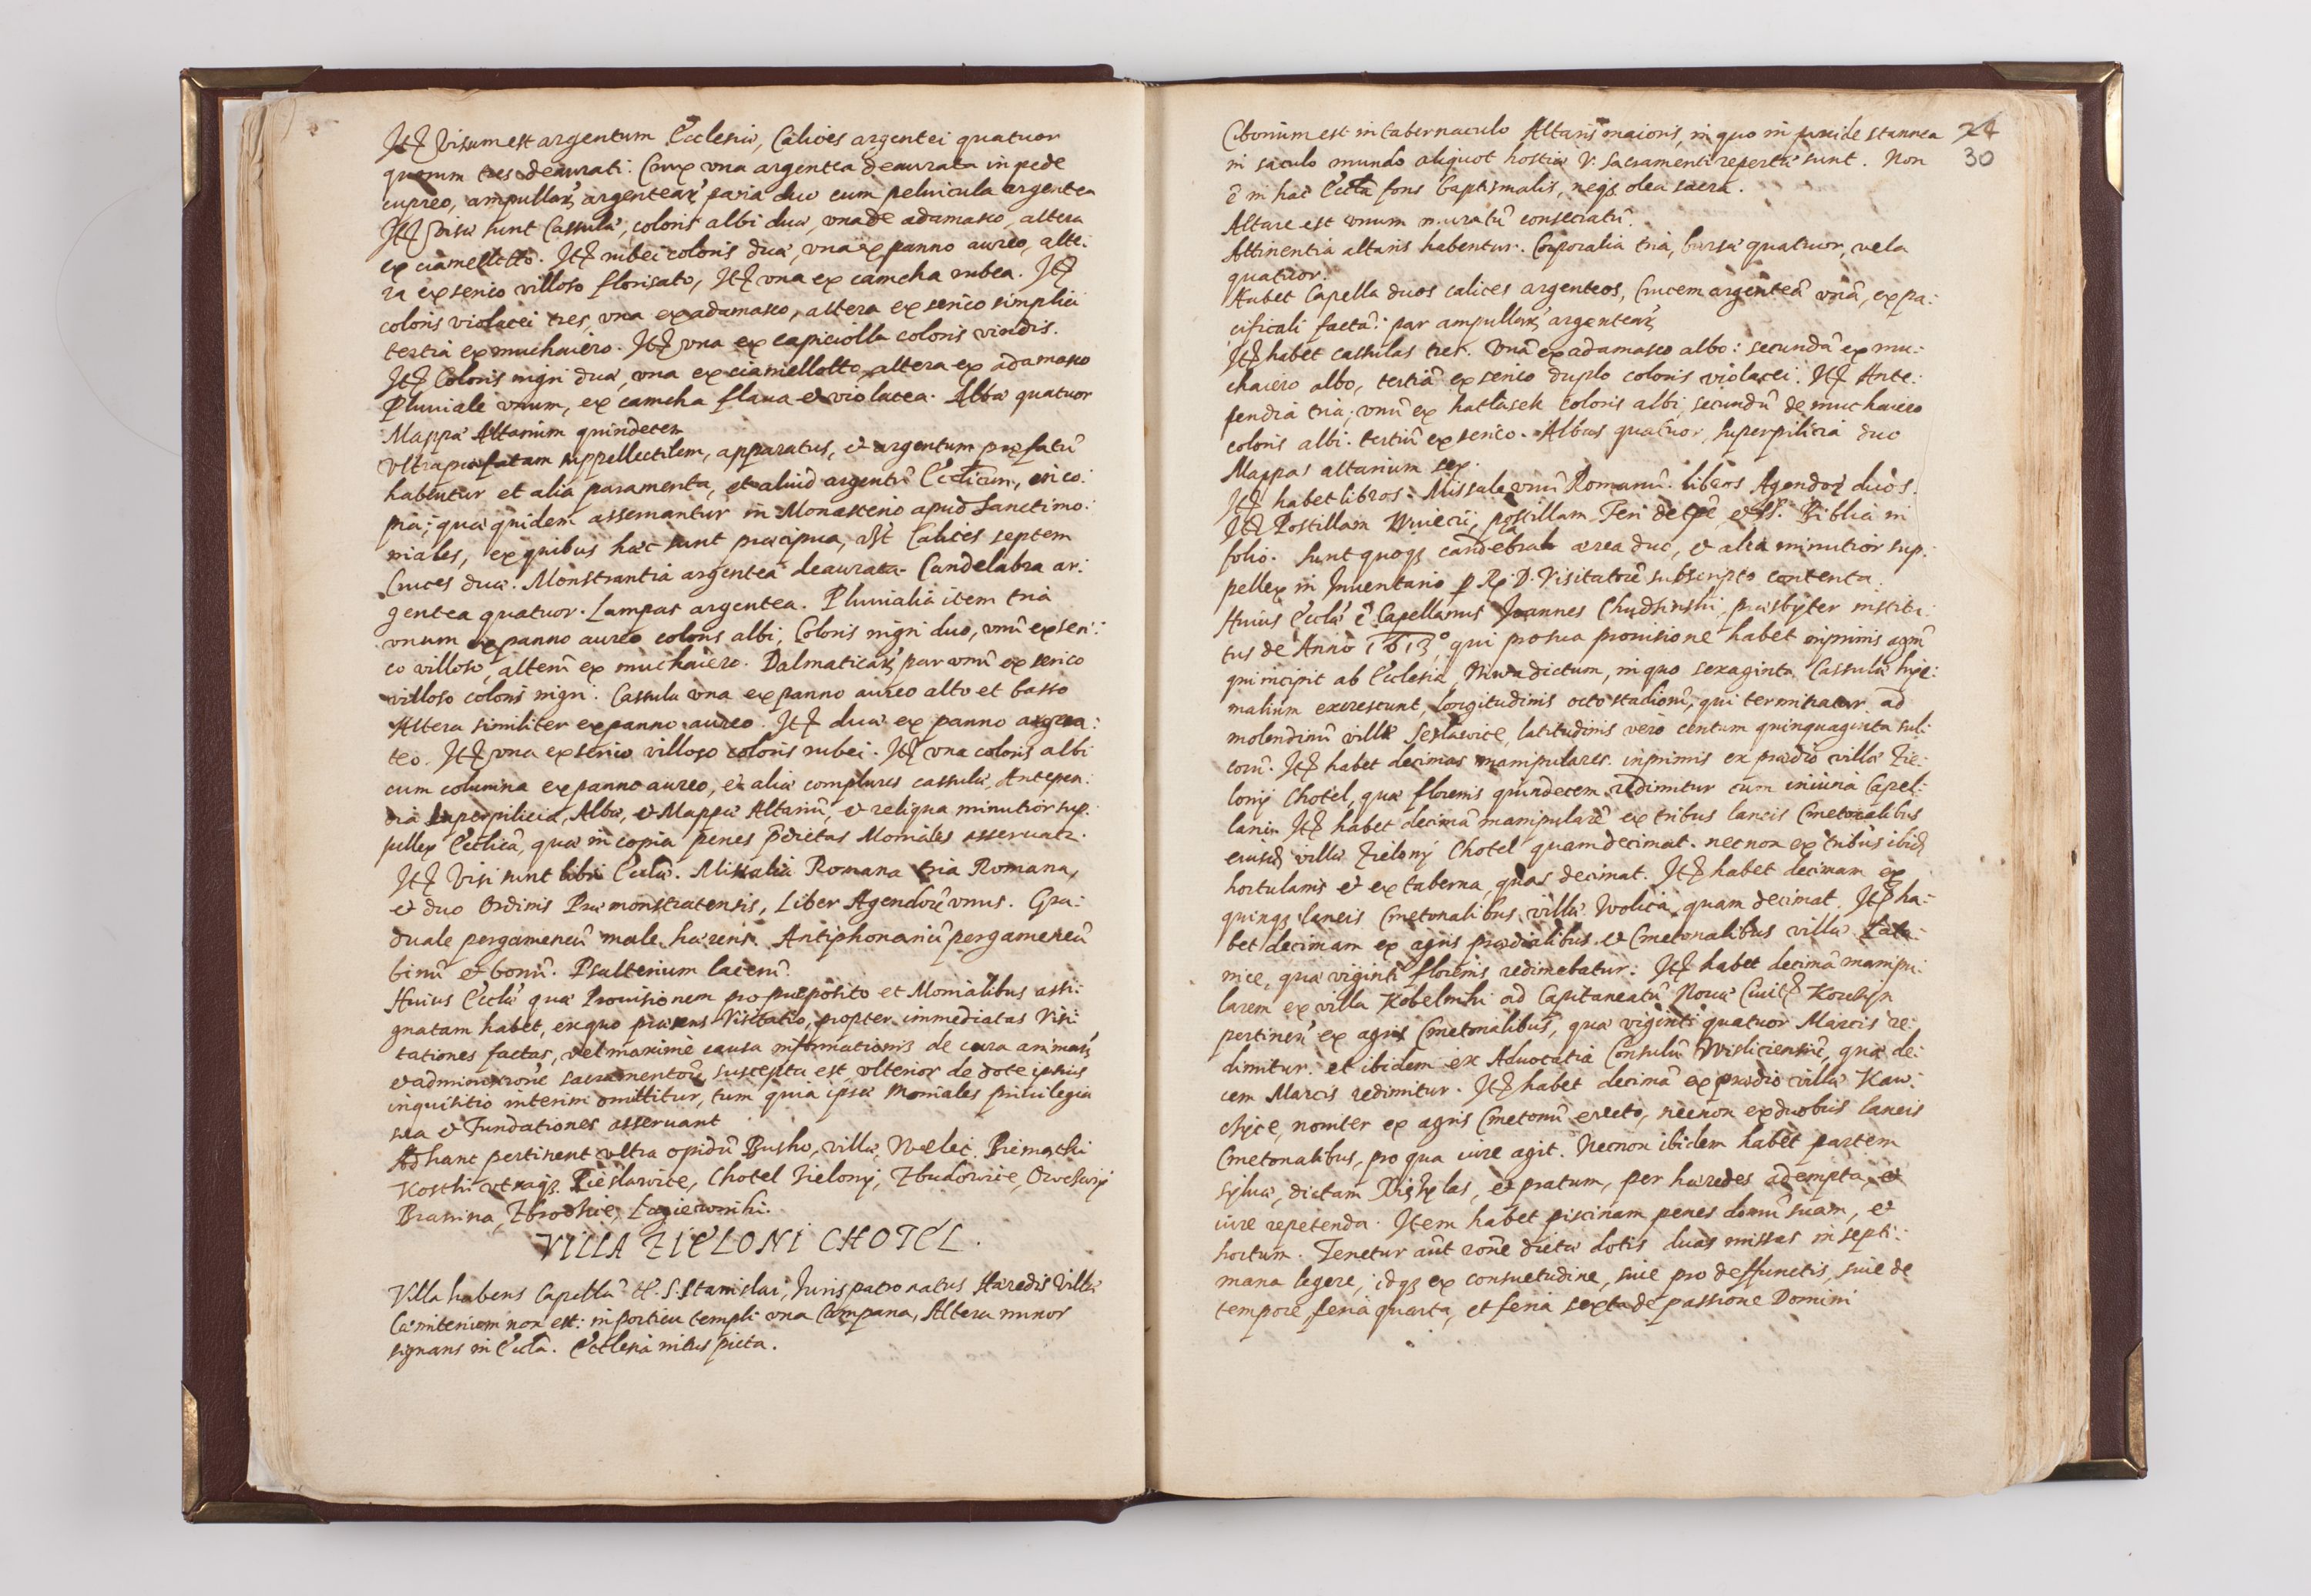 Itē Visum est argentum Ecclesiæ, Calices argentei quatuor
quorum tres deaurati: Crux vna argentea deaurata in pede
cupreo, ampullarū argentearū paria duo cum peluicula argentea
Itē visæ sunt Cassulæ, coloris albi duæ, vna de adamasco, altera
ex ciamelotto. Itē rubei coloris duæ, vna ex panno aureo, alte:
ra ex serico villoso florisato, Itē vna ex camcha rubea. Itē
coloris violacei tres, vna ex adamasco, altera ex serico simplici
tertia ex muchaiero. Itē vna ex capiciolla coloris viridis.
Itē Coloris nigri duæ, vna ex ciamellotto, altera ex adamasco
Pluuiale vnum, ex camcha flaua et violacea. Albæ quatuor
Mappæ Altarium quindecem
Vltra præfatam suppellectilem, apparatus, et argentum præfatū
habentur et alia paramenta, et aliud argentū Ecclicum, in co:
pia; quæ quidem asseruantur in Monasterio apud Sanctimo:
niales, ex quibus hæc sunt præcipua, vst Calices septem
Cruces duæ. Monstrantia argentea deaurata. Candelabra ar:
gentea quatuor. Lampas argentea. Pluuialia item tria
vnum ex panno aureo coloris albi, Coloris nigri duo, vnū ex seri:
co villoso, alterū ex muchaiero. Dalmaticarū par vnū ex serico
villoso coloris nigri. Cassula vna ex panno aureo alto et basso
Altera similiter ex panno aureo. Itē duæ ex panno argen:
teo. Itē vna ex serico villoso coloris rubei. Itē vna coloris albi
cum columna ex panno aureo, et aliæ complures cassulæ, Antepen:
dia Superpilicia, Albæ, et Mappæ Altariū, et reliqua minutior sup:
pellex Ecclicā, quæ in copia penes p̄dictas Moniales asseruatr.
Itē Visi sunt libri Ecclæ. Missalia Romana tria Romana,
et duo Ordinis Præmonstratensis, Liber Agendorū vnus. Gra:
duale pergameneū male hærens. Antiphonariū pergameneū
binū et bonū. Psalterium lacerū.
Huius Ecclæ quæ Prouisionem pro præposito et Monialibus assi:
gnatam habet, ex quo præsens Visitatio, propter immediatas Visi:
tationes factas, vel maximè causa informationis de cura animarū
et administrōne sacramentorū, suscepta est vlterior de dote ipsius
inquisitio interim omittitur, tum quia ipsæ Moniales priuilegia
sua et Fundationes asseruant
Ad hanc pertinent vltra opidū Busko, villæ, Welec, Biernatki
Kostki vtraqȝ, Pieslawice, Chotel Zielony, Zbudowice, Owczary
Branina, Zbrodzice, Łagiewniki.
VILLA ZIELONI CHOTEL.
Villa habens Capellā tt. S. Stanislai, Iuris patronatus Hæredis Villæ
Cæmiterium non est: in porticu templi vna Campana, Altera minor
signans in Eccla. Ecclesia intus picta.
24
30
Ciborium est in tabernaculo Altaris maioris, in quo in pixide stannea
in sacculo mundo aliquot hostiæ V. Sacramenti repertæ sunt. Non
ē in hac Eccla fons baptismalis, neqȝ olea sacra.
Altare est vnum muratū consecratū.
Attinentia altaris habentur. Corporalia tria, bursæ quatuor, vela
quatuor.
Habet Capella duos calices argenteos, Crucem argenteā vnā, ex pa:
cificali factā: par ampullarū argentearū
Itē habet cassulas tres. Vnā ex adamasco albo: secundā ex mu:
chaiero albo, tertiā ex serico duplo coloris violacei. Itē Ante:
pendia tria; vnū ex hatlasek coloris albi, secundū de muchaiero
coloris albi. tertiū ex serico. Albas quatuor, superpilicia duo
Mappas altarium sex.
Itē habet libros. Missale vnū Romanū. libros Agendorū duos.
Itē Postillam Wuiecii, postillam Feri de tpē, et SS. Biblia in
folio. Sunt quoqȝ candelabra ærea duo, et alia minutior sup:
pellex in Inuentario p R. D. Visitatorē subscripto contenta.
Huius Ecclæ ē Capellanus Joannes Chudzinski, præsbyter institu:
tus de Anno 1613°, qui pro sua prouisione habet inprimis agrū
qui incipit ab Ecclesia, Niwa dictum, in quo sexaginta Cassulæ hye:
malium excrescunt, longitudinis octo stadiorū, qui terminatur ad
molendinū villæ Seslawice, latitudinis verò centum quinquaginta sul:
corū. Itē habet decimas manipulares. inprimis ex prædio villæ Zie:
lony Chotel, quæ florenis quindecem redimitur cum iniuria Capel:
lani. Itē habet decimā manipularē ex tribus laneis Cmetonalibus
eiusdē villæ Zielony Chotel quam decimat. necnon ex tribus ibidē
hortulanis et ex taberna, quas decimat. Itē habet decimam ex
quinqȝ laneis Cmetonalibus villæ Wolica, quam decimat. Itē ha:
bet decimam ex agris prædialibus et Cmetonalibus villæ Łata:
nice, quæ viginti florenis redimebatur: Itē habet decimā manipu:
larem ex villa Kobelniki ad Capitaneatū Nouæ Ciuitē Korchyn
pertinen̄ ex agris Cmetonalibus, quæ viginti quatuor Marcis re:
dimitur. et ibidem ex Aduocatia Consulū Wisliciensiū, quæ de:
cem Marcis redimitur. Itē habet decimā ex prædio villæ Kaw:
chyce, nouiter ex agris Cmetonū erecto, necnon ex duobus laneis
Cmetonalibus, pro qua iure agit. Necnon ibidem habet partem
syluæ, dictam Xięzy las, et pratum, per hæredes adempta, et
iure repetenda. Item habet piscinam penes domū suam, et
hortum. Tenetur aūt rōne dictæ dotis duas missas in septi:
mana legere, idqȝ ex consuetudine, siue pro deffunctis, siue de
tempore, feria quarta, et feria sexta de passione Domini